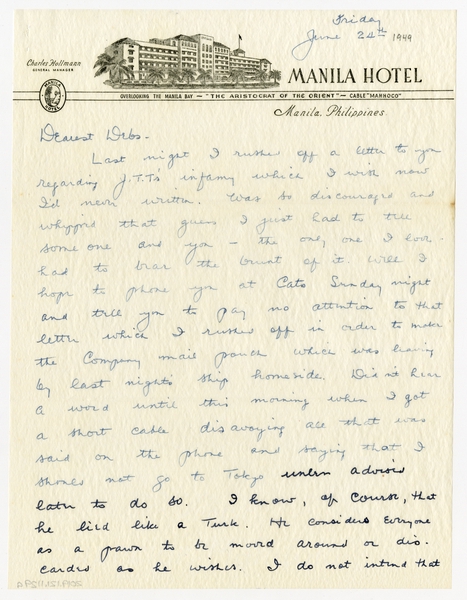 Friday
June 24th 1949
Charles Hollmann
GENERAL MANAGER
MANILA HOTEL
OVERLOOKING THE MANILA BAY — "THE ARISTOCRAT OF THE ORIENT" — CABLE "MANHOCO"
Manila, Philippines
Dearest Debs -
Last night I rushed off a letter to you
regarding J.T.T.'s infamy which I wish now
I'd never written. Was so discouraged and
whipped that guess I just had to tell
some one and you - the only one I love -
had to bear the brunt of it. Well I
hope to phone you at Cats Sunday night
and tell you to pay no attention to that
letter which I rushed off in order to make
the Company mail pouch which was leaving
by last night's ship homeside. Didn't hear
a word until this morning when I got
a short cable disavowing all that was
said on the phone and saying that I
should not go to Tokyo unless advised
later to do so. I know, of course, that
he lied like a Turk. He considers everyone
as a pawn to be moved around or dis-
carded as he wishes. I do not intend that